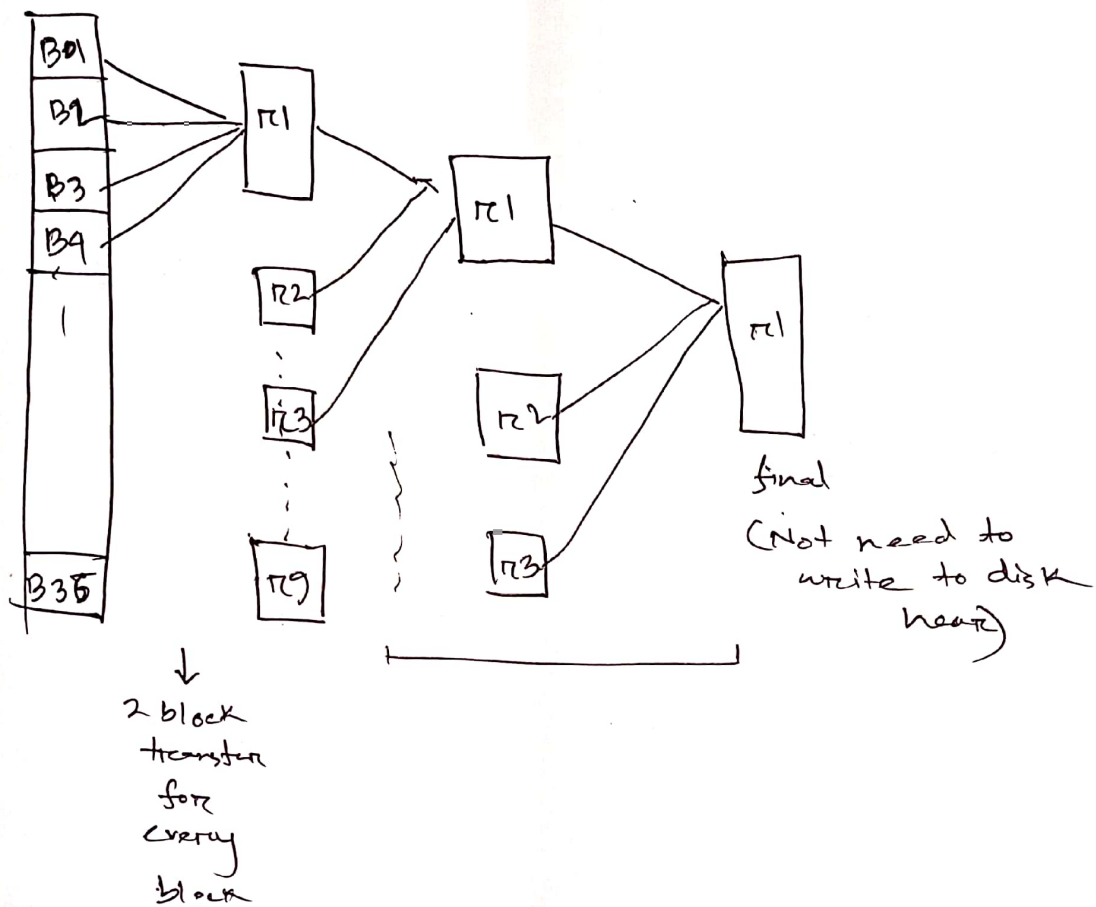 B01
B2
B3
B4
B36
r1
r2
r3
r9
r1
r2
r3
r1
final
(Not need to
write to disk
hear)
2 block
transfer
for
every
block